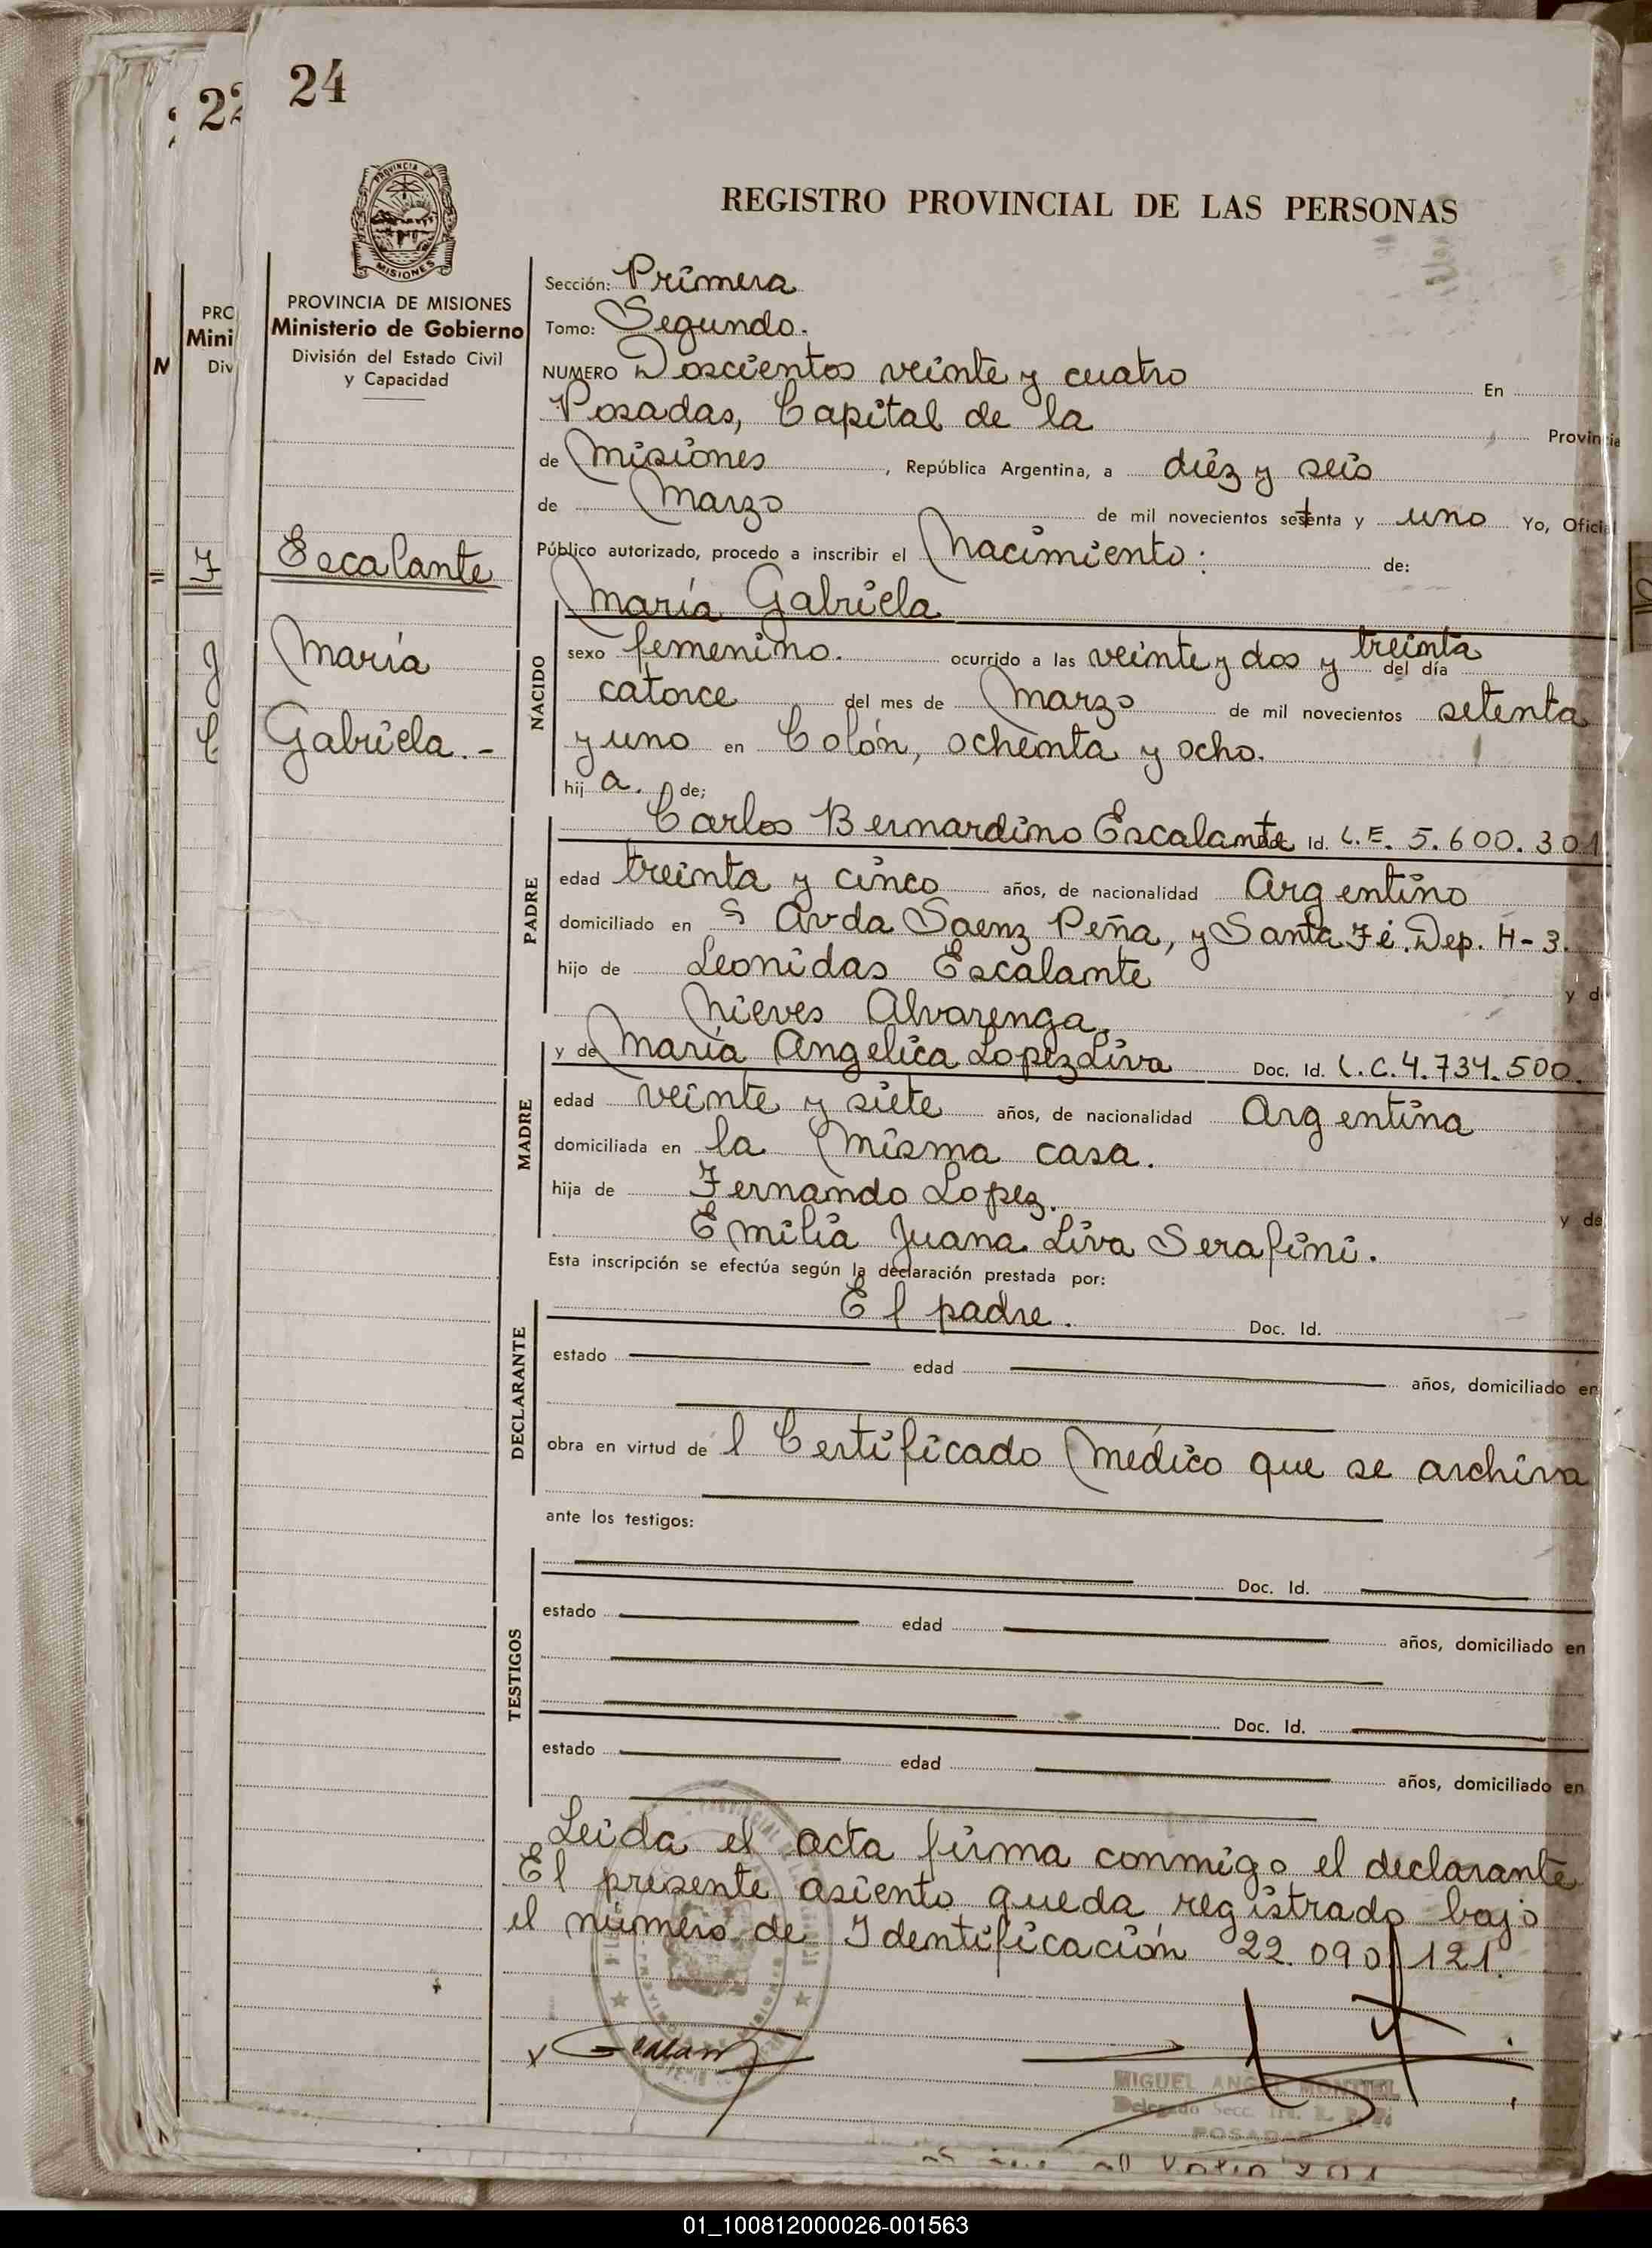 24
22
REGISTRO PROVINCIAL DE LAS PERSONAS
PROVINCIA DE MISIONES
Ministerio de Gobierno
División del Estado Civil
y Capacidad
Escalante
María
Gabriela.-
Sección: Primera
Tomo: Segundo.
NUMERO Doscientos veinte y cuatro En
Posadas, Capital de la Provincia
de Misiones, República Argentina, a diéz y seis
de Marzo de mil novecientos setenta y uno Yo, Oficial
Público autorizado, procedo a inscribir el Nacimiento: de:
María Gabriela
NACIDO
sexo femenino. ocurrido a las veinte y dos y treinta del día
catorce del mes de Marzo de mil novecientos setenta
y uno en Colón, ochenta y ocho.
hij a. de;
PADRE
Carlos Bernardino Escalante Id. L.E. 5.600.301
edad treinta y cinco años, de nacionalidad Argentino
domiciliado en Avda Saenz Peña, y Santa Fé. Dep. H-3.
hijo de Leonidas Escalante y d
Nieves Alvarenga.
MADRE
y de María Angelica Lopez Liva Doc. Id. L.C.4.734.500.
edad veinte y siete años, de nacionalidad Argentina
domiciliada en la misma casa.
hija de Fernando Lopez. y de
Emilia Juana Liva Serafini.
Esta inscripción se efectúa según la declaración prestada por:
DECLARANTE
El padre. Doc. Id.
estado edad años, domiciliado en
obra en virtud de l Certificado Médico que se archiva
ante los testigos:
TESTIGOS
Doc. Id.
estado edad años, domiciliado en
Doc. Id.
estado edad años, domiciliado en
Leida el acta firma conmigo el declarante
El presente asiento queda registrado bajo
el número de Identificación 22.090.121.
MIGUEL ANGEL MONTIEL
Delegado Secc. 1ra. R. P.
POSADAS
01_100812000026-001563